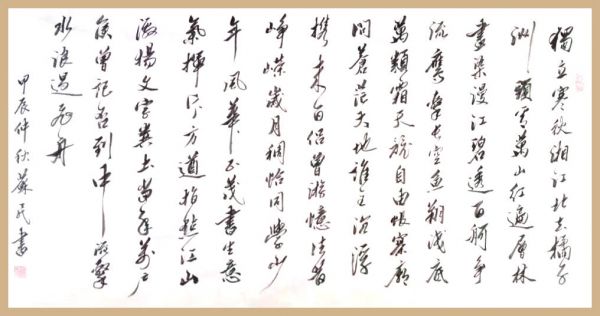 獨立寒秋湘江北去橘子
洲頭看萬山紅遍層林
盡染漫江碧透百舸爭
流鷹擊長空魚翔淺底
萬類霜天競自由悵寥廓
問蒼茫大地誰主沉浮
携來百侣曾游憶往昔
崢嶸歲月稠恰同學少
年風華正茂書生意
氣揮斥方遒指點江山
激揚文字糞土當年萬户
侯曾記否到中流擊
水浪遏飛舟
甲辰仲秋蘇民書